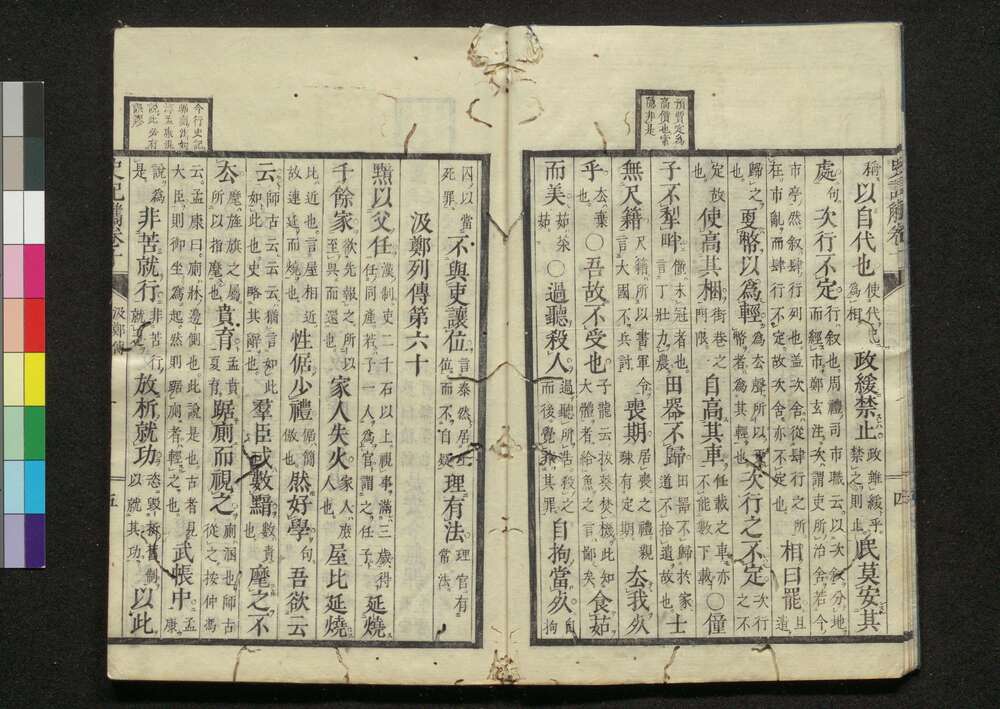 預賣定爲
高價也索
隱非是
稱以自代也使代也爲相政緩禁止政雖緩乎禁之則止民莫安其
處句次行不定行叙也周禮司市職云以次叙分地而經市鄭玄注次謂吏所治舍若今
市亭然叙肆行列也蓋次舍從肆行之所在市亂而肆行不定故次舍亦不定也相曰罷且遣
歸之也更幣以爲輕爲去聲所以更幣者爲其輕也次行之不定次行之不
定故使高其梱街巷之門限自高其車任載之車亦不能數下載○僮
子不犁畔僮未冠者也言丁壯力農田器不歸田器不歸於家道不拾遺故也士
無尺籍尺籍所以書軍令言大國不兵討喪期居喪之禮親疎有定期去我死
乎去棄也○吾故不受也子龍云拔葵焚機此知大體者給魚之言鄙矣食茹
而美茹菜茹○過聽殺人過聽所告殺之而後覺非其罪自拘當死自拘
囚以當死罪不與吏讓位言泰然居上位而不自疑理有法理官有常法
汲鄭列傳第六十
黯以父任漢制吏二千石以上視事滿三歲得任同產若子一人爲官謂之任子延燒
千餘家欲先報之所以至與而還也家人失火家人庶人也屋比延燒
比近也言屋相近故連延而燒也性倨少禮倨簡傲也然好學句吾欲云
云師古云云云猶言如此如此也史略其辭也羣臣或數黯數責也麾之不
去麾旌旗之屬所以指麾也賁育孟賁夏育踞廁而視之廁溷也師古從之按仲馮
云孟康曰廁牀邊側也此說是也古者見大臣則御坐爲起然則踞廁者輕之也武帳中孟康
說爲是非苦就行非苦行就也放析就功恣毀析舊制以就其功以此
汲鄭傳
五